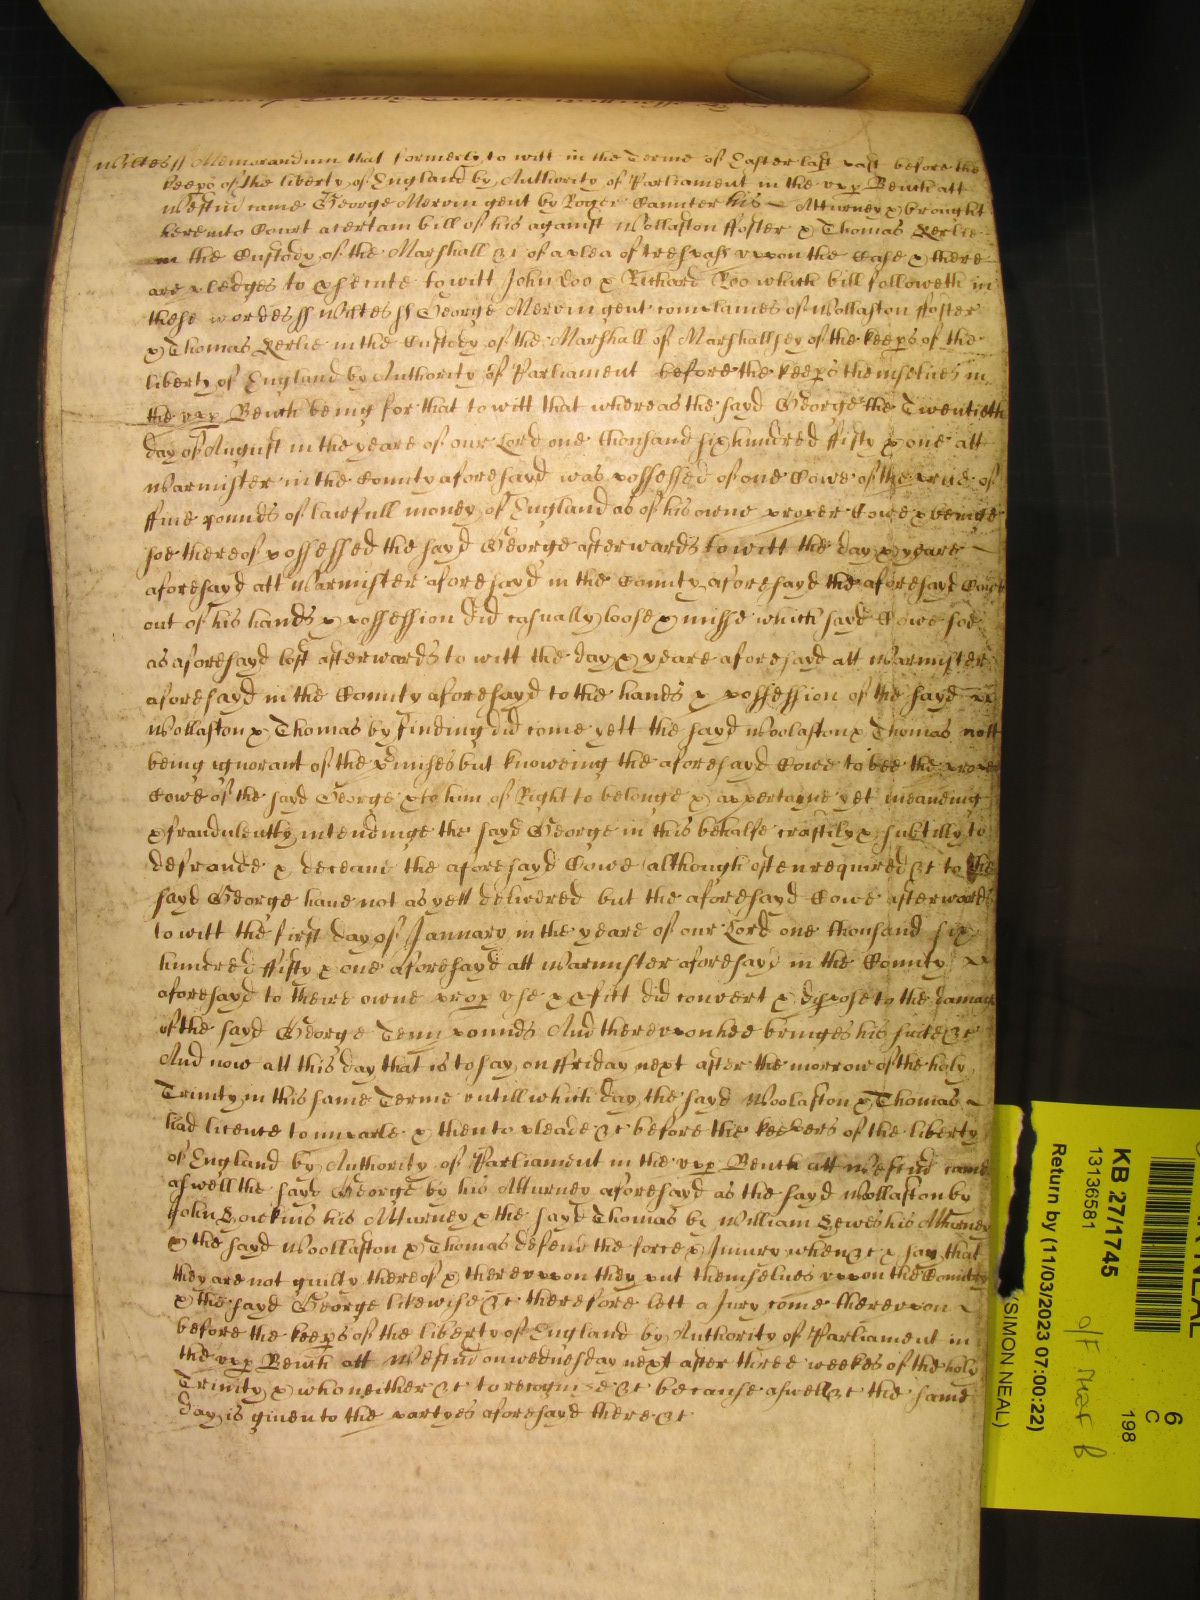 Wiltes ss Memorandum that formerly to witt in the Terme of Easter last past before the
keeps of the liberty of England by Authority of Parliament in the upp Bench att
Westm came George Mervin gent by Roger Caunter his Atturney & brought
here into Court a certain bill of his against Wollaston ffoster & Thomas Kerlie
in the Custody of the Marshall &c of a plea of trespass uppon the Case & there
are pledges to psecute to witt John Doo & Richard Roo which bill followeth in
these wordes ss Wiltes ss George Mervin gent complaines of Wollaston ffoster
& Thomas Kerlie in the Custody of the Marshall of Marshallsey of the keeps of the
liberty of England by Authority of Parliament before the keeps themselves in
the upp Bench being for that to witt that whereas the sayd George the Twentieth
day of August in the yeare of our Lord one thousand six hundred ffifty & one att
Warmister in the County aforesayd was possessed of one Cowe of the price of
ffive pounds of lawfull money of England as of his owne proper Cowe & beinge
soe thereof possessed the sayd George afterwards to witt the day & yeare
aforesayd att Warmister aforesayd in the County aforesayd the aforesayd Cowe
out of his hands & possession did casually loose & misse which sayd Cowe soe
as aforesayd lost afterwards to witt the day & yeare aforesayd att Warmister
aforesayd in the County aforesayd to the hands & possession of the sayd
Wollaston & Thomas by finding did come yett the sayd Woolaston & Thomas nott
being ignorant of the pmises but knoweing the aforesayd Cowe to bee the proper
Cowe of the sayd George & to him of Right to belonge & appertayne yet meaneing
& fraudulently intendinge the sayd George in this behalfe craftily & subtilly to
defraude & deceave the aforesayd Cowe although often required &c to the
sayd George have not as yett delivered but the aforesayd Cowe afterwards
to witt the first day of January in the yeare of our Lord one thousand six
hundred ffifty & one aforesayd att Warmister aforesayd in the County
aforesayd to theire owne prop use & pfitt did convert & dispose to the damage
of the sayd George Tenn pounds And thereuppon hee bringes his suite &c
And now att this day that is to say on ffriday next after the morrow of the holy
Trinity in this same Terme untill which day the sayd Woolaston & Thomas
had licence to imparle & then to pleade &c before the keepers of the liberty
of England by Authority of Parliament in the upp Bench att Westm came
aswell the sayd George by his Atturney aforesayd as the sayd Wollaston by
John his Atturney & the sayd Thomas by William his Atturney
& the sayd Woollaston & Thomas defend the force & Injury when &c & say that
they are not guilty thereof & thereuppon they put themselves uppon the Country
& the sayd George likewise &c therefore lett a Jury come thereuppon
before the keeps of the liberty of England by Authority of Parliament in
the upp Bench att Westm on wednesday next after three weekes of the holy
Trinity & who neither &c to recognise &c because aswell &c the same
day is given to the partyes aforesayd there &c
KB 27/1745
13136581
Return by (11/03/2023 07:00:22)
(SIMON NEAL)
6
C
198